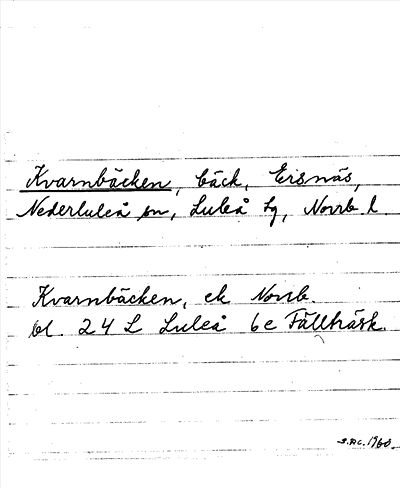 Kvarnbäcken, bäck, Ersnäs,
Nederluleå sn, Luleå tg, Norrb. l.
Kvarnbäcken, ek Norrb.
bl. 24 L Luleå 6e Fällträsk.
1960.